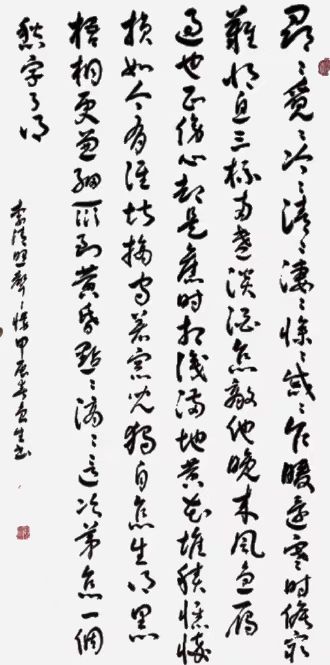 尋〻覓〻冷〻清〻淒〻慘〻戚〻乍暖還寒時候最
難將息三杯兩盞淡酒怎敵他晚來風急雁
過也正傷心卻是舊時相識滿地黃花堆積憔悴
損如今有誰堪摘守著窗兒獨自怎生得黑
梧桐更兼細雨到黃昏點〻滴〻這次第怎一個
愁字了得
李清照聲〻慢甲辰春